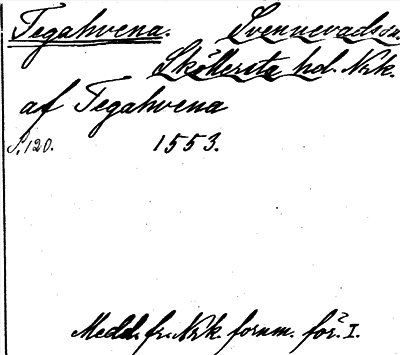 Tegahvena. Svennevads sn.
Sköllersta hd. Nrk.
af Tegahvena
S. 120. 1553.
Medd. fr. Nrk. fornm. för. I.